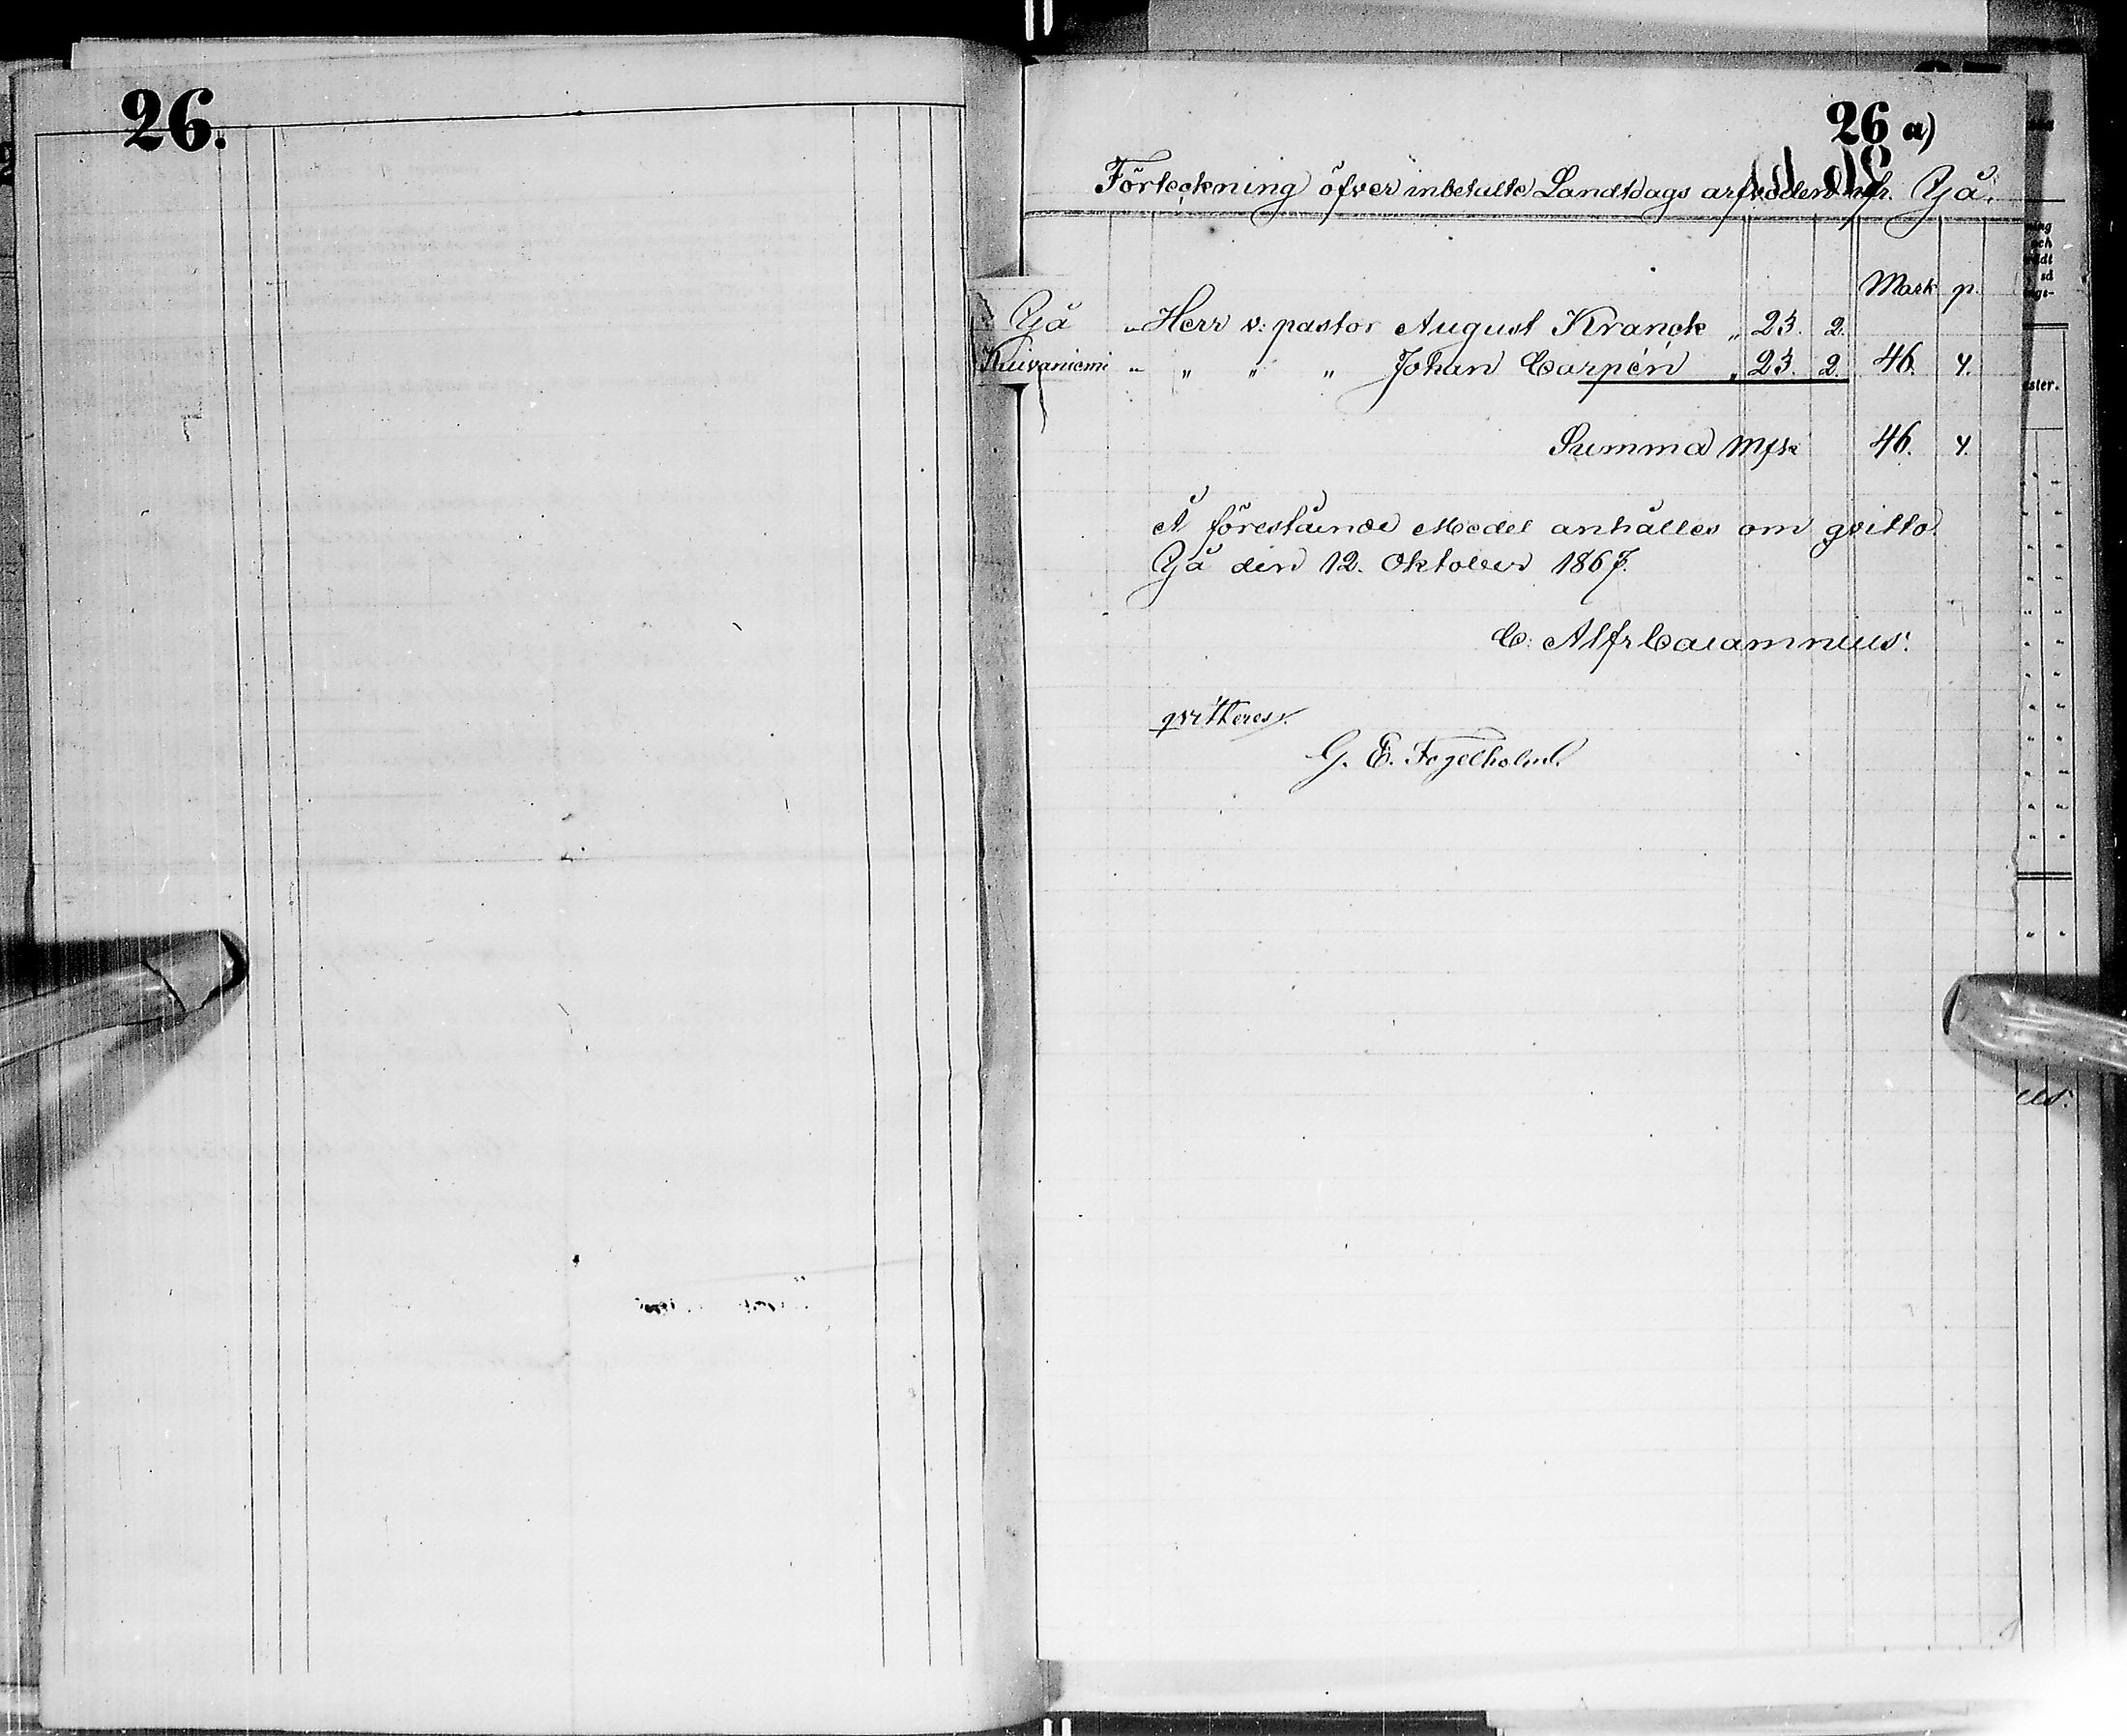 26.
26 a)
Förteckning öfver inbetalte Landtdags arfvoden fr. Yjå.
Mark p.
Yjå " Herr v: pastor August Kranck " 23. 2.
Kuivaniemi " " " " Johan Carpén " 23. 2. 46. 4.
Summa Mfk 46. 4.
Å förestående Medel anhålles om qvitto.
Yjå den 12. Oktober 1867.
C. Alfr Caiamnius.
qvitteres.
G. E. Fogelholm.
ster.
us.